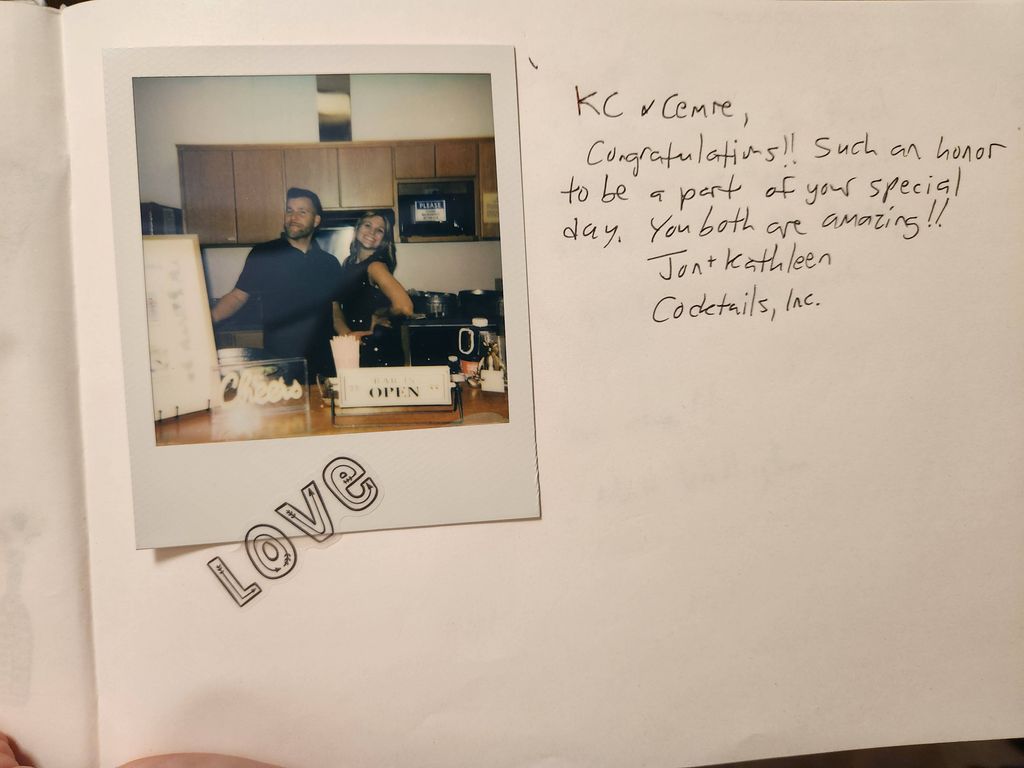 PLEASE
Cheers
BAR IS
OPEN
LOVE
KC & Cemre,
Congratulations!! Such an honor
to be a part of your special
day. You both are amazing!!
Jon + Kathleen
Cocktails, Inc.